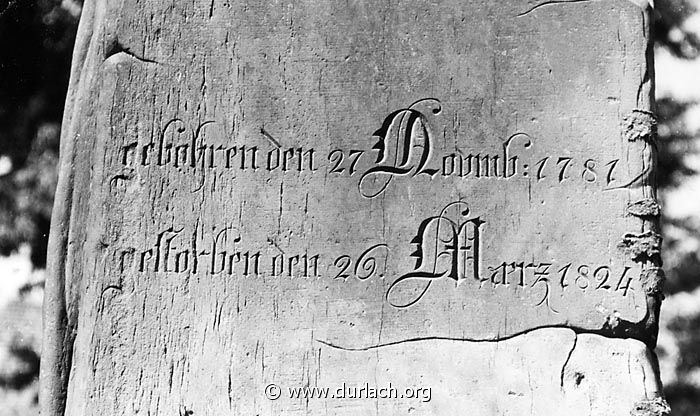 gebohren den 27 Novmb: 1781
gestorben den 26. Mærz 1824
© www.durlach.org